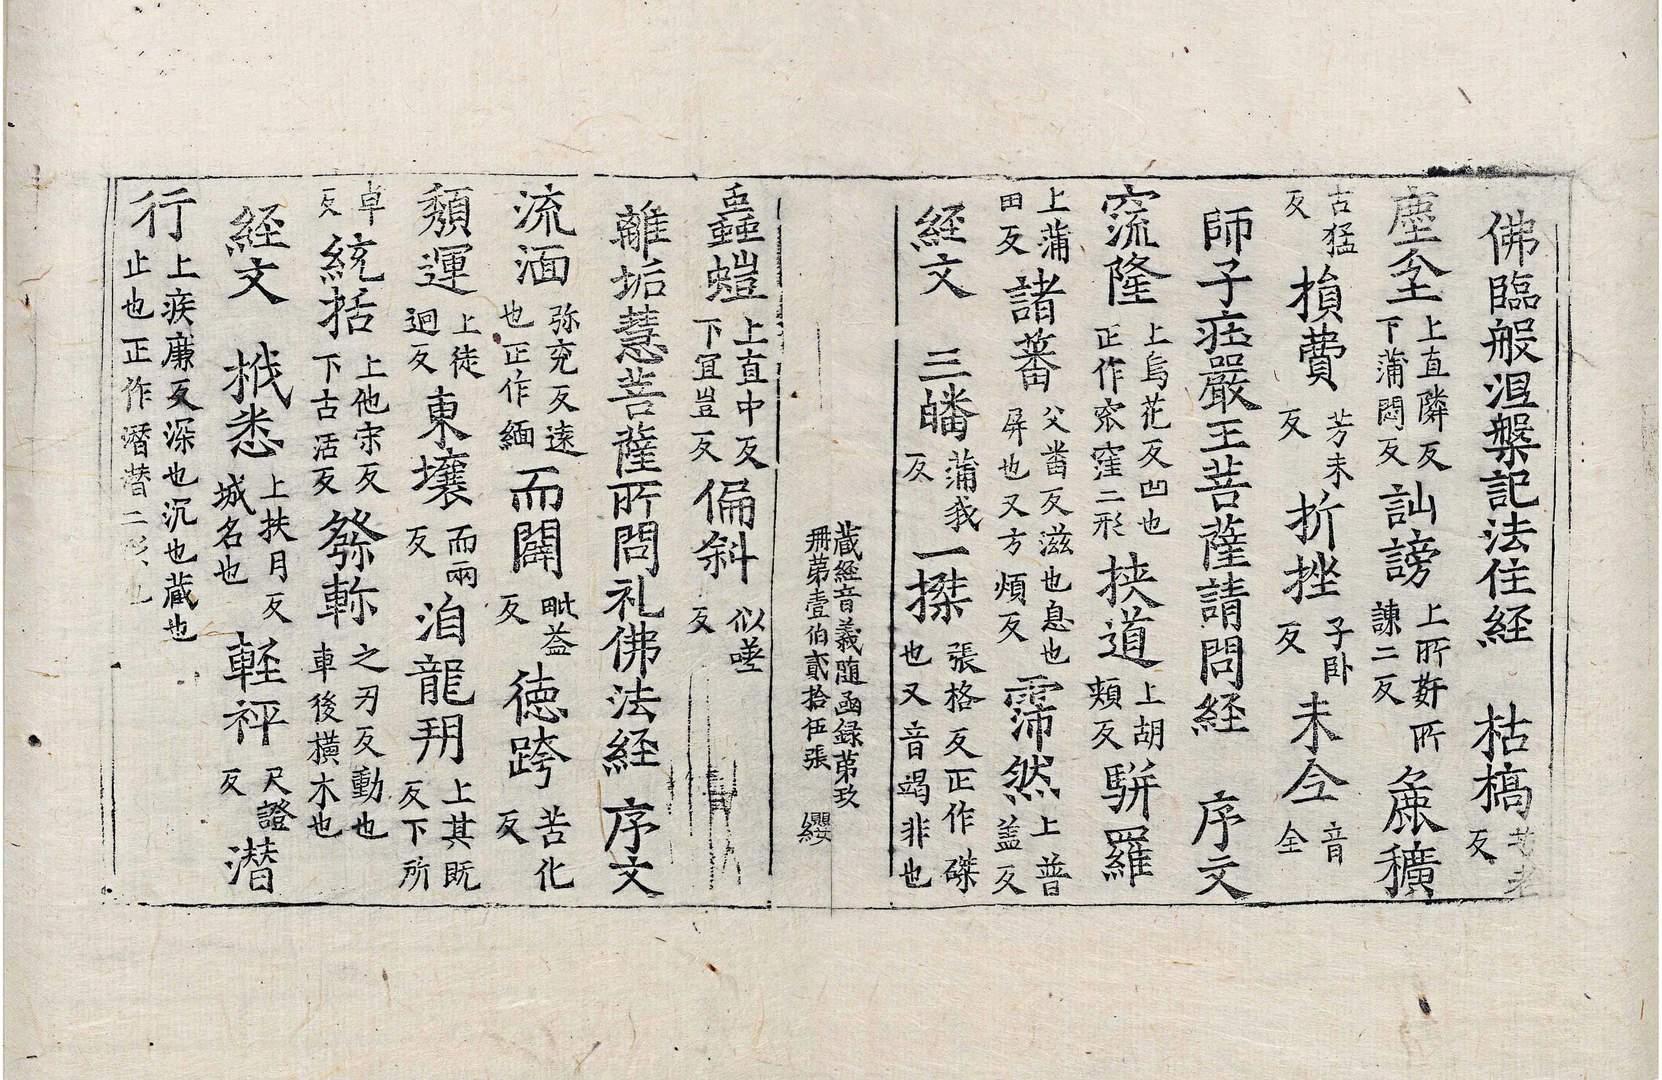 佛臨般泹槃記法住経 枯槁苦老反
塵坌上直隣反下蒲悶反訕謗上所姧所諫二反麁穬
古猛反損費芳未反折挫子卧反未仝音全
師子㽵嚴王菩薩請問経 序文
窊隆上烏花反凹也正作窊窪二形挟道上胡頰反駢羅
上蒲田反諸蕃父𤲞反滋也息也屏也又方煩反霈然上普盖反
経文 三皤蒲我反一搩張格反正作磔也又音竭非也
藏経音義随函録苐玖
冊苐壹伯貳拾伍張 纓
蟁螘上直中反下宜豈反偏斜似嗟反
離垢慧菩薩所問礼佛法経 序文
流湎弥兖反遠也正作緬而闢毗益反徳跨苦化反
頽運上徒迴反東壤而兩反洎龍朔上其既反下所
卓反統括上他宋反下古活反發軫之刃反動也車後橫木也
経文 栰悉上扶月反城名也軽秤尺證反潜
行上疾廉反深也沉也蔵也止也正作潛替二形也